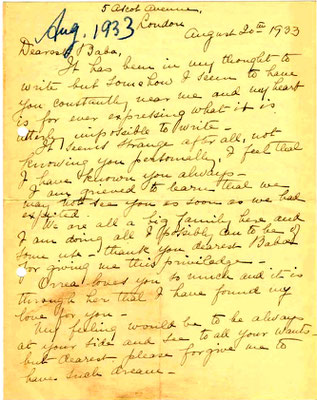 5 Ascot Avenue,
London
Aug, 1933
August 20th 1933
Dearest Baba,
It has been in my thought to
write but somehow I seem to have
You constantly near me and my heart
is for ever expressing what it is
utterly impossible to write -
It seems strange after all, not
knowing you personally, I feel that
I have known you always -
I am grieved to learn that we
may not see you as soon as we had
expected -
We are all a big family here and
I am doing all I possibly can to be of
some use - thank you dearest Baba
for giving me this priviledge -
loves you so much and it is
through her that I have found my
love for you -
My feeling would be to be always
at your side and see to all your wants -
but dearest please forgive me to
have such dream -